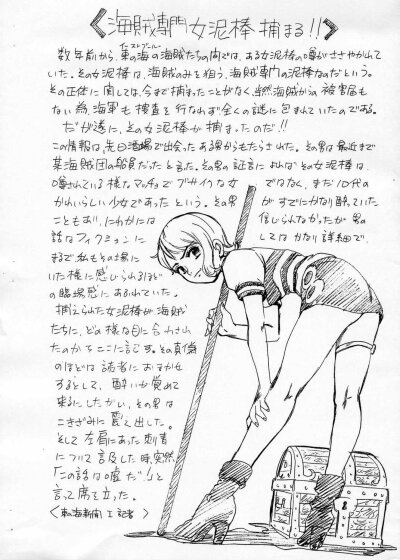 《海賊専門女泥棒 捕まる!!》
数年前から、東の海の海賊たちの間では、ある女泥棒の噂がささやかれて
イーストブルー
いた。その女泥棒は、海賊のみを狙う、海賊専門の泥棒なのだという。
その正体に関しては、今まで捕まったことがなく、当然海賊からの被害届も
ない為、海軍も捜査を行なわず全くの謎に包まれていたのである。
だが遂に、その女泥棒が捕まったのだ!!
この情報は、先日酒場で出会ったある男からもたらされた。その男は最近まで
某海賊団の船員だったと言った。その男の証言によれば女泥棒は、
噂されている様なマッチョでブサイクな女ではなく、まだ10代の
かわいらしい少女であったという。その男がすでにかなり酔っていた
こともあり、にわかには信じられなかったが男の
話はフィクションにしてはかなり詳細で、
まるで私もその場に
いた様に感じられるほど
の臨場感にあふれていた。
捕えられた女泥棒が海賊
たちに、どの様な目に合わされ
たのかをここに記す。その真偽
のほどは読者におまかせ
するとして、酔いが覚めて
来るにしたがい、その男は
こきざみに震え出した。
そして左肩にあった刺青
について言及した時、突然
「この話は嘘だ!」と
言って席を立った。
〈東の海新聞 I記者〉